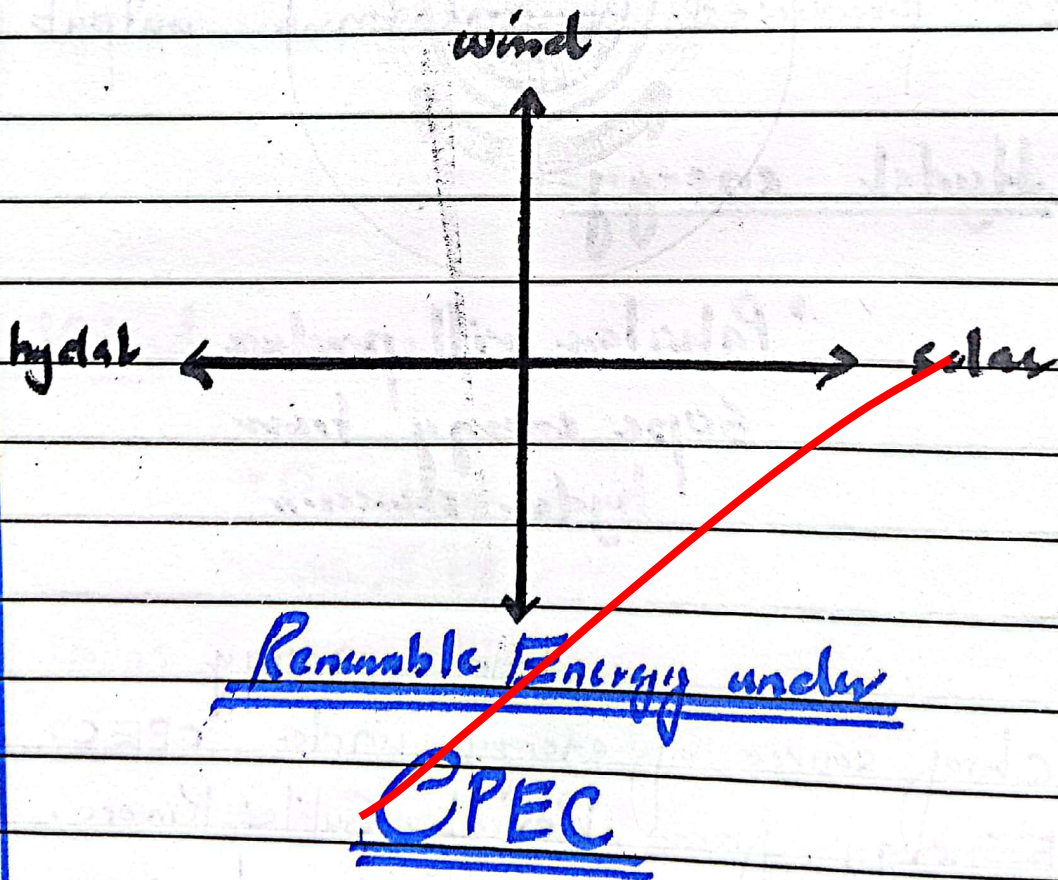 wind
hydal solar
Renewable Energy under
CPEC